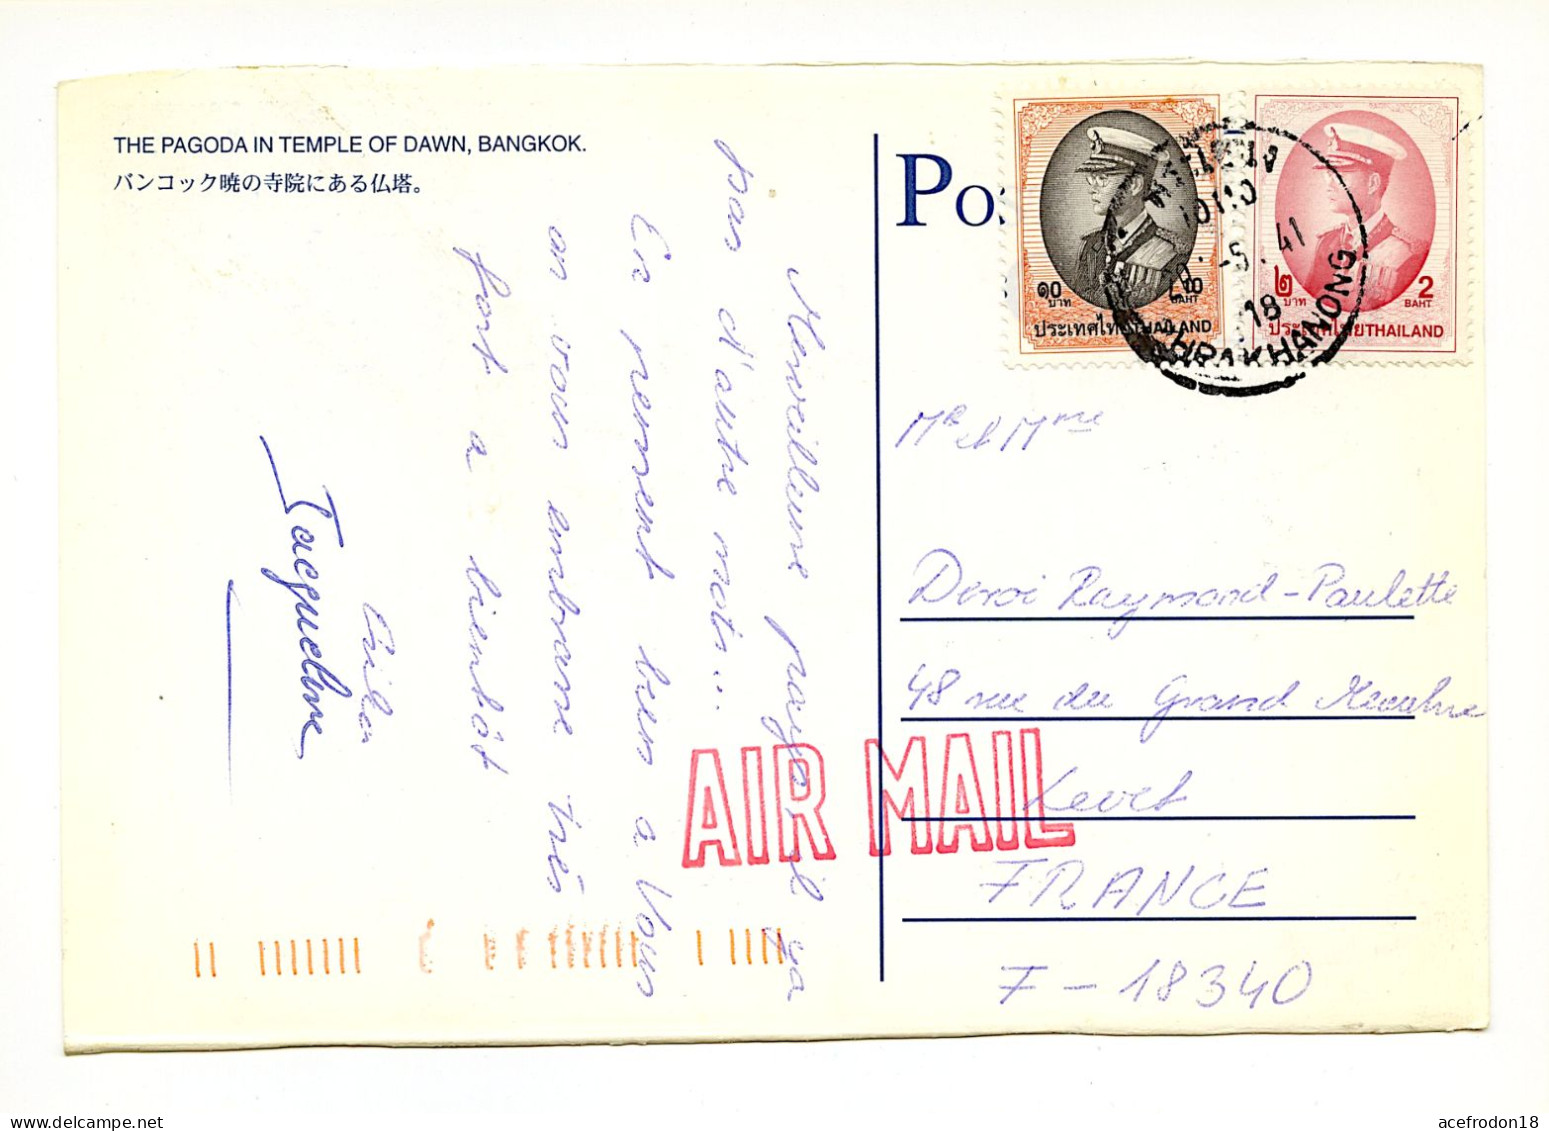 THE PAGODA IN TEMPLE OF DAWN, BANGKOK.
バンコック暁の寺院にある仏塔。
Merveilleux pays, il y a
pas d'autre mots...
En pensent bien a Vous
on vous embrasse très
fort a bientôt
Jacqueline
Pos
๑๐
บาท
10
BAHT
ประเทศไทย THAILAND
๒
บาท
2
BAHT
ประเทศไทย THAILAND
10110
-5. 41
18
PHRAKHANONG
Mr et Mme
Deroi Raymond-Paulette
48 rue du Grand
Levet
AIR MAIL
FRANCE
F-18340
acefrodon18